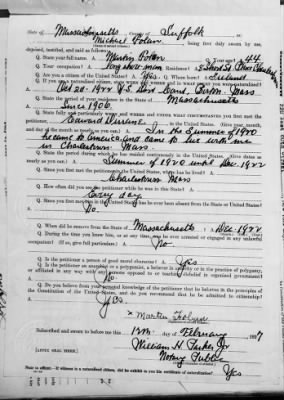 State of Massachusetts, County of Suffolk ss:
Michael Folan, being first duly sworn by me,
deposed, testified, and said as follows:
Q. State your full name. A. Martin Folan Q. Your age? A. 44
Q. Your occupation? A. Longshoreman Residence?
Q. Are you a citizen of the United States? A. Yes Q. Where born? A. Ireland
Oct 20-1922 U.S. Dist Court, Boston Mass
Q. State the period of your residence in the State of Massachusetts
Since 1906.
Q. State fully and particularly when and where and under what circumstances you first met the
petitioner, Edward
day and the month as nearly as you can.) A. In the Summer of 1920
he came to America and came to live with me
in Charlestown, Mass.
Q. State the period during which he has resided continuously in the United States. (Give dates as
nearly as you can.) A. Summer of 1920 until Dec 1922
Q. Since you first met the petitioner in the United States, where has he lived?
Charlestown Mass
Q. How often did you see the petitioner while he was in the State? A.
Every day
Q. Since you first met him in the United States has he ever been absent from the State of
No.
Q. When did he remove from the State of Massachusetts A. Dec 1922
Q. During the time you knew him, was he at any time ever arrested or engaged in any unlawful
occupation? (If so, give full particulars.) A. No.
Q. Is the petitioner a person of good moral character? A. Yes
Q. Is the petitioner an anarchist or a polygamist, a believer in anarchy or in the practice of polygamy,
or affiliated in any way with any persons opposed to or teaching disbelief in organized government?
A. No
Q. Do you believe from your personal knowledge of the petitioner that he believes in the principles
of the Constitution of the United States, and do you recommend that he be admitted to citizenship?
A. Yes
x Martin Folan
Subscribed and sworn to before me this 12th day of February 1927
William H. Parker Jr
Notary Public
Yes